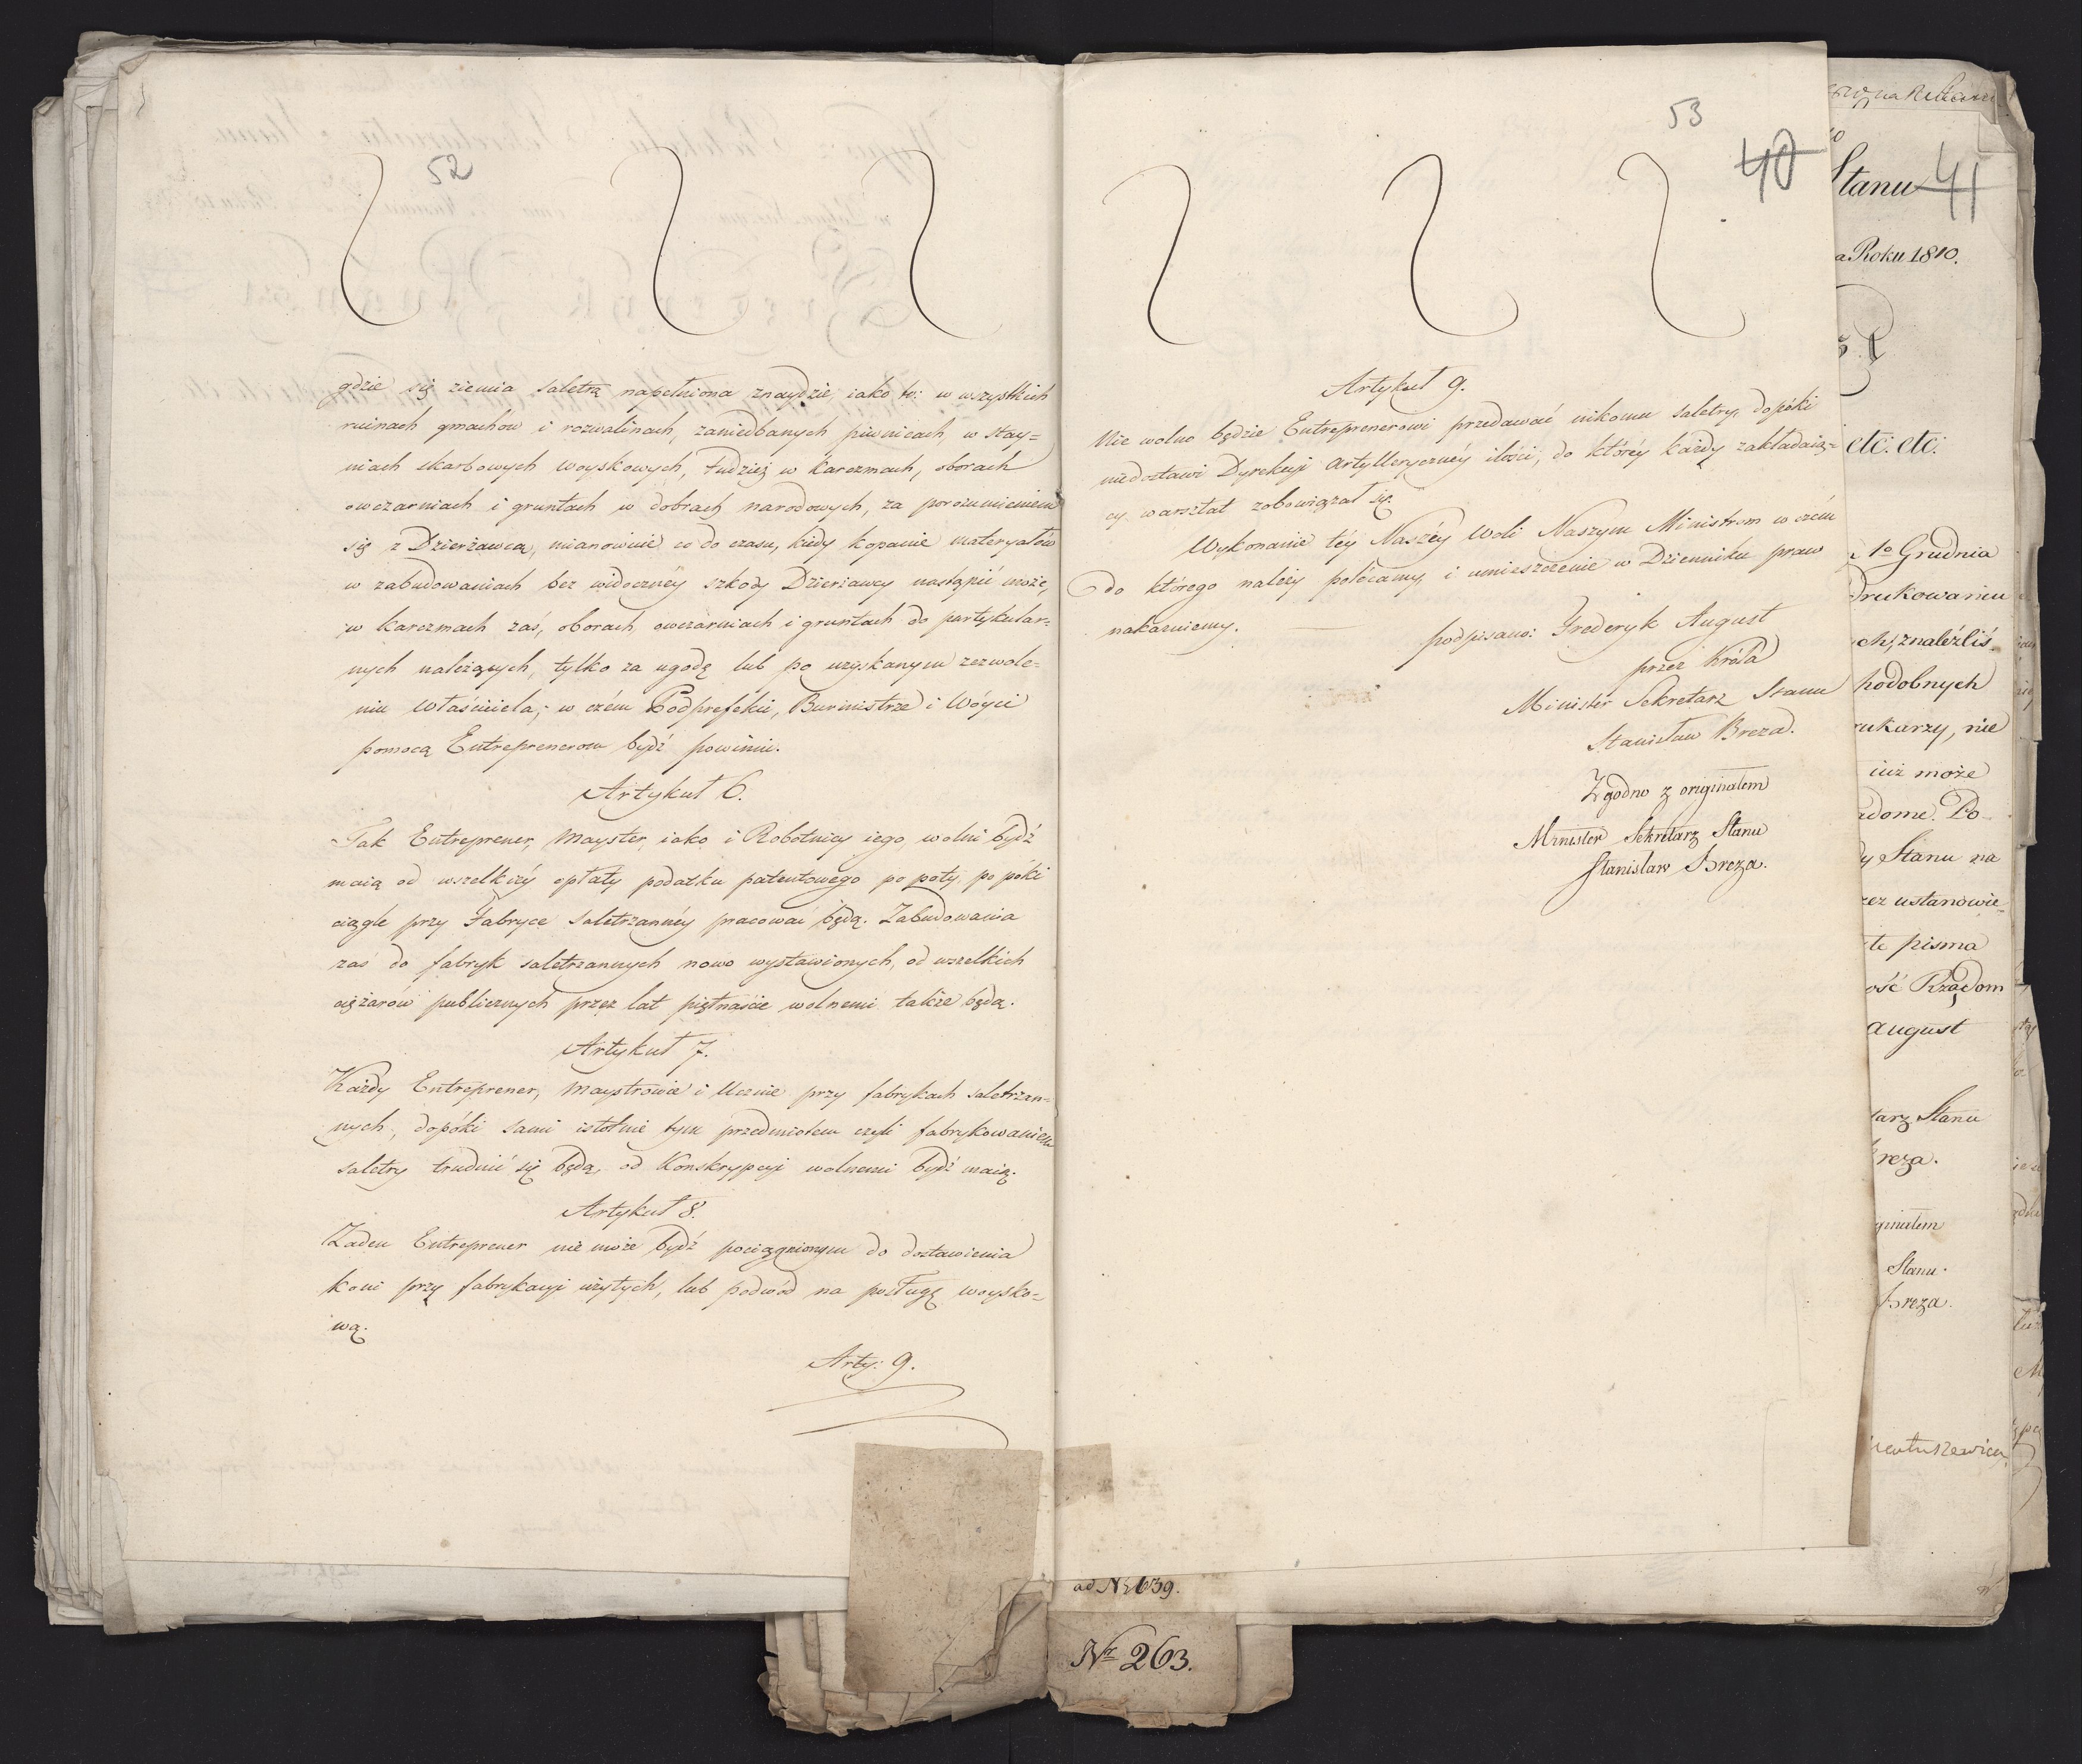 52
gdzie się ziemia saletrą napełniona znaydzie, iako to: w wszystkich
ruinach gmachow i rozwalinach, zaniedbanych piwnicach, w stay=
niach skarbowych woyskowych, tudzież w karczmach, oborach
owczarniach i gruntach w dobrach narodowych, za porozumieniem
się z Dzierżawcą, mianowicie co do czasu, kiedy kopanie materyałów
w zabudowaniach bez widoczney szkody Dzierżawcy nastąpić może,
w karczmach zaś, oborach owczarniach i gruntach do partykular=
nych należących, tylko za ugodą lub po uzyskanym zezwole=
niu Właściciela; w czém Podprefekci, Burmistrze i Wóyci
pomocą Entreprenerow bydź powinni.
Artykuł 6.
Tak Entreprener, Mayster, iako i Robotnicy iego, wolni bydź
maią od wszelkiéy opłaty podatku patentowego po poty, po póki
ciągle przy Fabryce saletrzannéy pracować będą. Zabudowania
zaś do fabryk saletrzannych nowo wystawionych, od wszelkich
ciężarów publicznych przez lat piętnaście wolnemi także będą.
Artykuł 7.
Każdy Entreprener, Maystrowie i Ucznie przy fabrykach saletrzan=
nych, dopóki sami istotnie tym przedmiotem czyli fabrykowaniem
saletry trudnić się będą, od Konskrypcyi wolnemi bydź maią.
Artykuł 8.
Żaden Entreprener nie może bydź pociągnionym do dostawienia
koni przy fabrykacyi użytych, lub podwód na posługę woysko=
wą.
Arty: 9.
53
40
Artykuł 9.
Nie wolno będzie Entreprenerowi przedawać nikomu saletry, dopóki
niedostawi Dyrekcyi Artylleryczney ilości, do któréy każdy zakładaią=
cy warsztat zobowiązał się.
Wykonanie téy Naszéy Woli Naszym Ministrom w czém
do którego należy polécamy, i umieszczenie w Dzienniku praw
nakazuiemy.
podpisano: Frederyk August
przez Króla
Minister Sekretarz Stanu
Stanisław Breza.
Zgodno z originałem
Minister Sekretarz Stanu
Stanisław Breza.
ad Nr 639.
Nr 263.
Stanu
41
a Roku 1810.
etc: etc:
10 Grudnia
drukowaniu
ch, znaleźliś
podobnych
rukarzy, nie
iuż może
adome. Po
dy Stanu na
zez ustanowie
te pisma
ość Rządom
august
tarz Stanu
reza.
ginałem
Stanu.
Breza.